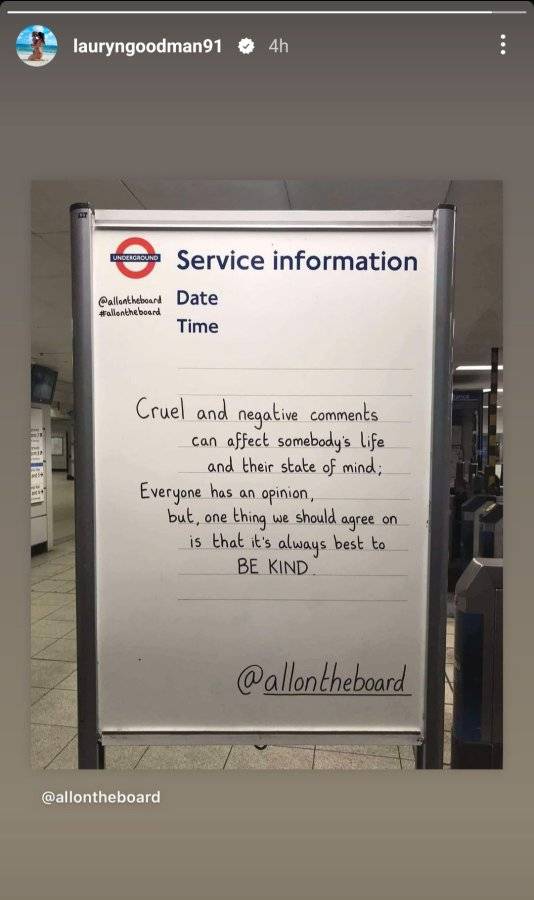 lauryngoodman91 4h
UNDERGROUND
Service information
@allontheboard
#allontheboard
Date
Time
Cruel and negative comments
can affect somebody's life
and their state of mind;
Everyone has an opinion,
but, one thing we should agree on
is that it's always best to
BE KIND.
@allontheboard
@allontheboard